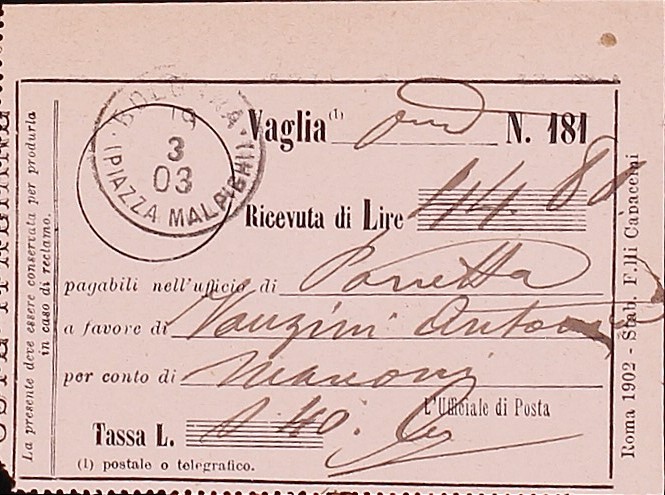 La presente deve essere conservata per produrla
in caso di reclamo.
BOLOGNA
(PIAZZA MALPIGHI)
19
3
03
Vaglia (1) ord N. 181
Ricevuta di Lire 44.80
pagabili nell'ufficio di Porretta
a favore di Vanzini Antonio
per conto di Marconi
L'Ufficiale di Posta
Tassa L. 40.
(1) postale o telegrafico.
Roma 1902 - Stab. F.lli Capaccini